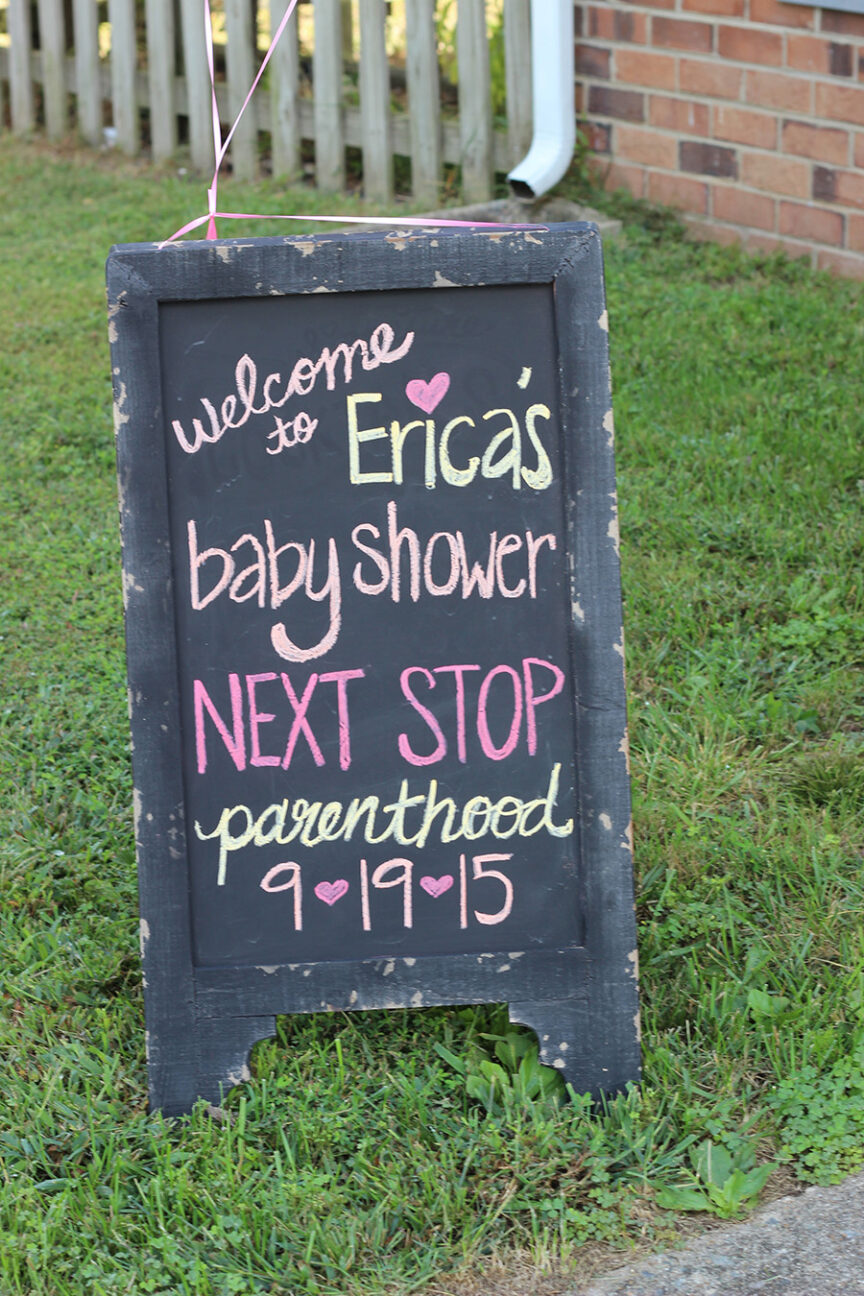 welcome
to Erica's
baby shower
NEXT STOP
parenthood
9♥19♥15